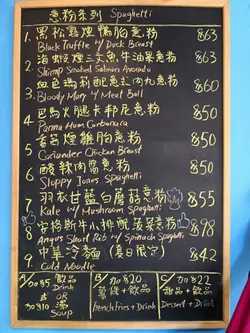 意粉系列 Spaghetti
1. 黑松露煙鴨胸意粉 $63
Black Truffle w/ Duck Breast
2. 海蝦煙三文魚牛油果意粉 $63
Shrimp Smoked Salmon Avocado
3. 血色瑪利肥意大肉丸意粉 $60
Bloody Mary w/ Meat Ball
4. 巴馬火腿卡邦尼意粉 $50
Parma Ham Carbonara
5. 香茜煙雞胸意粉 $50
Coriander Chicken Breast
6. 酸辣肉醬意粉 $50
Sloppy Jones Spaghetti
7. 羽衣甘藍白蘑菇意粉 $55
Kale w/ Mushroom Spaghetti
8. 安格斯牛小排配菠菜意粉 $98
Angus Short Rib w/ Spinach Spaghetti
9. 中華冷麵 (夏日限定) $42
Cold Noodle
A/ 加$5 飲品
Drink
或 OR
加$10 湯
Soup
B/ 加$20
薯條+飲品
French Fries + Drink
C/ 加$22
甜品+飲品
Dessert + Drink